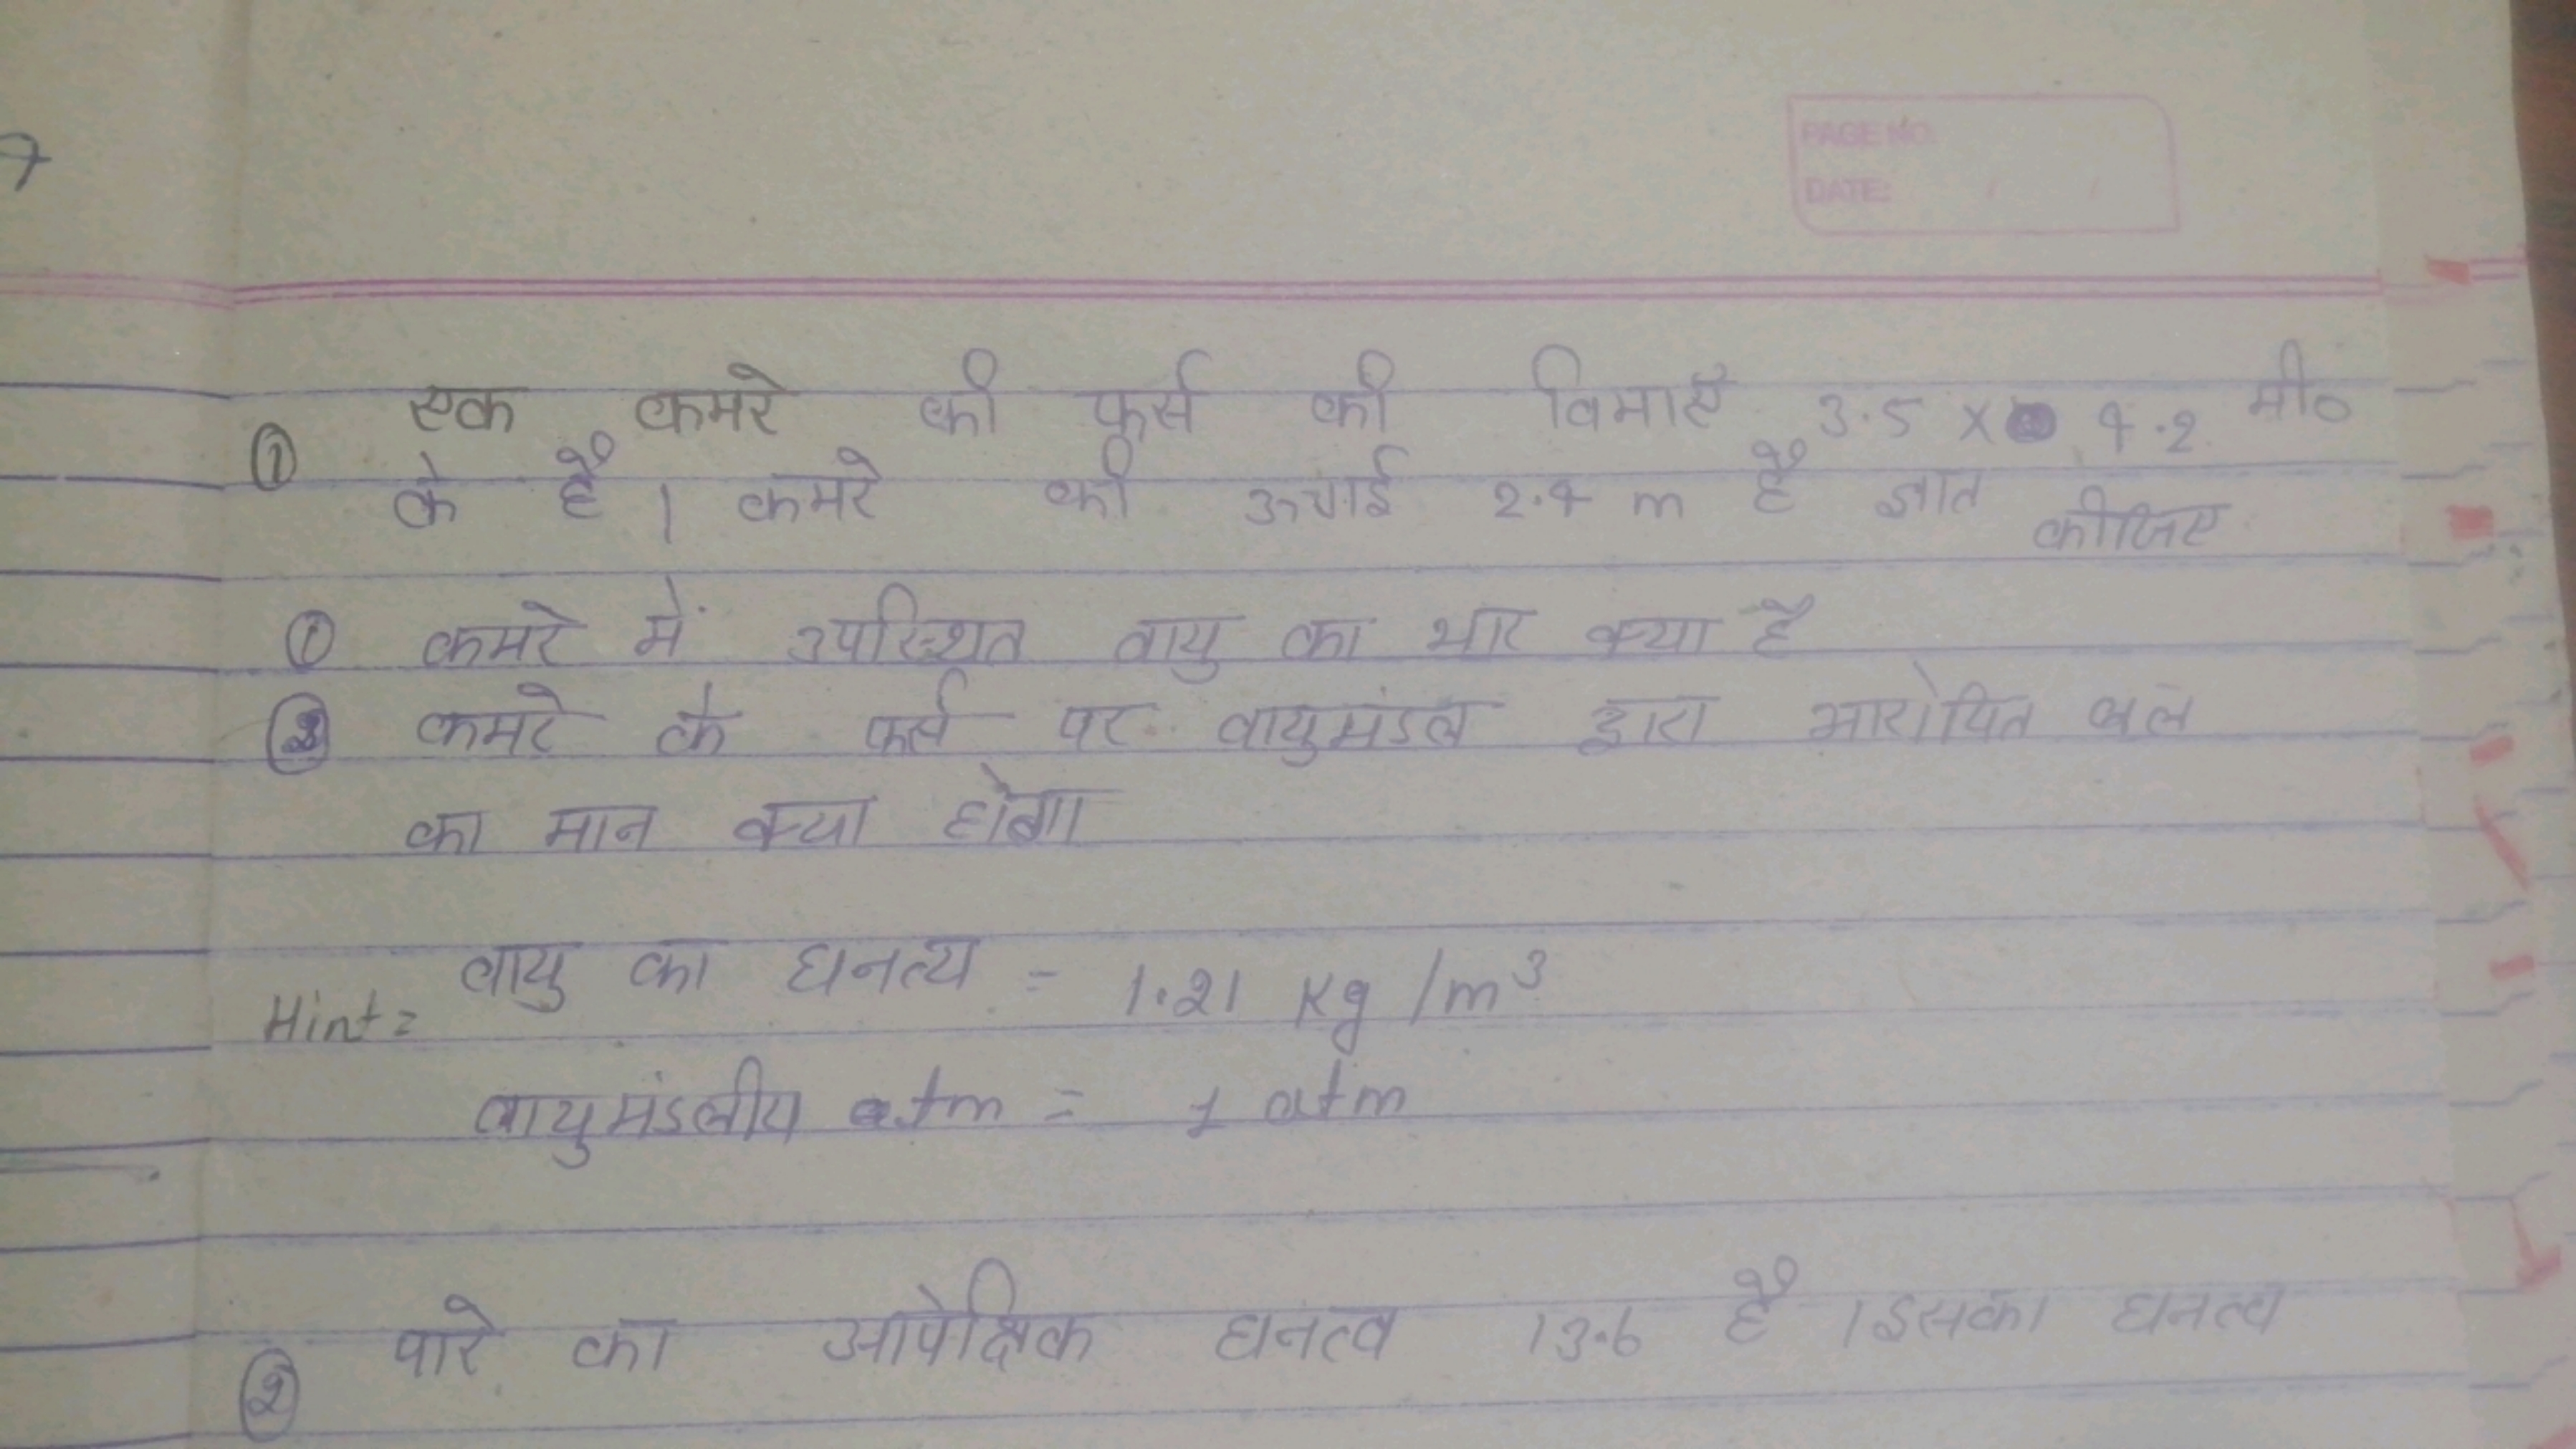 PAGE NO.
DATE:
7
① एक कमरे की फर्स की विमाएँ 3.5 x 4.2 मी०
के है। कमरे की ऊचाई 2.4 m है ज्ञात कीजिए
① कमरे में उपस्थित वायु का भार क्या है
② कमरे के फर्स पर वायुमंडल द्वारा आरोपित बल
का मान क्या होगा
वायु का घनत्य = 1.21 Kg/m³
Hint =
वायुमंडलीय atm = 1 atm
② पारे का आपेक्षिक घनत्व 13.6 है। इसका घनत्व